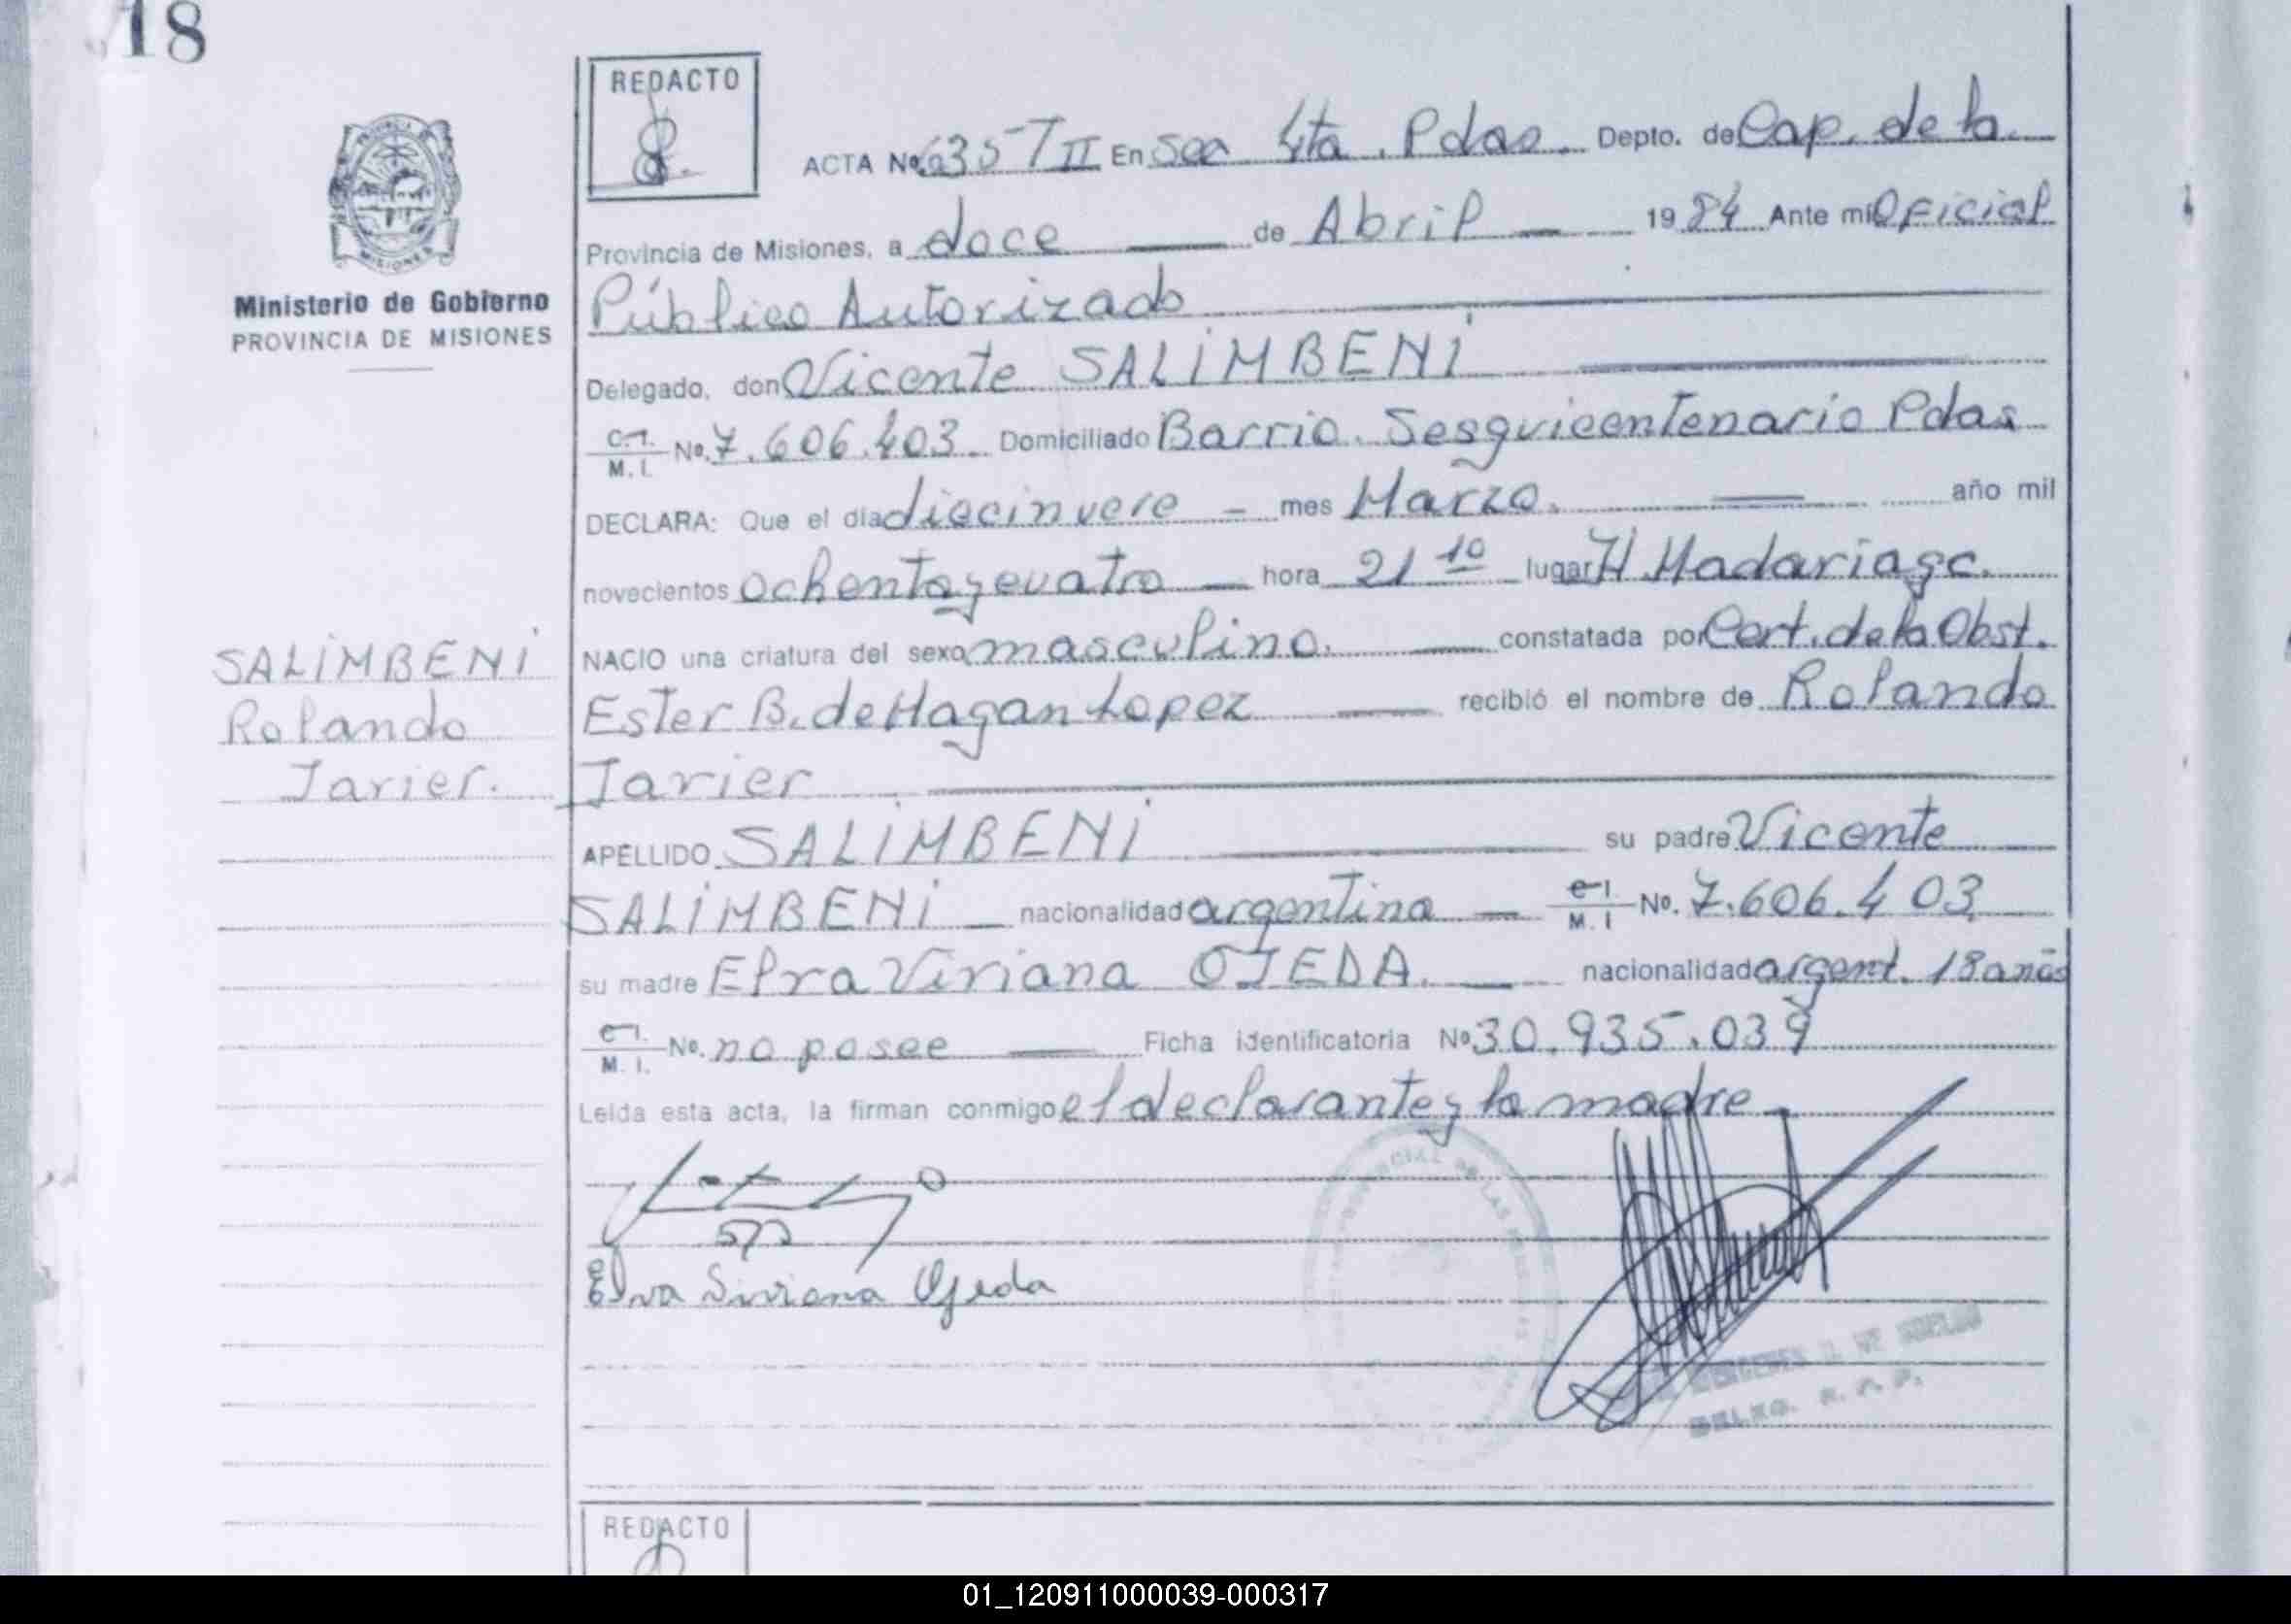 18
REDACTO
ACTA No. 6357 II En Sec 4ta. Pdas. Depto. de Cap. de la
Provincia de Misiones, a doce de Abril 1984 Ante mi Oficial
Público Autorizado
Ministerio de Gobierno
PROVINCIA DE MISIONES
Delegado, don Vicente SALIMBENI
C.I. M. I. No. 7.606.403 Domiciliado Barrio. Sesquicentenario Pdas
DECLARA: Que el día diecinueve - mes Marzo. año mil
novecientos ochenta y cuatro hora 21 10 lugar H. Madariaga.
NACIO una criatura del sexo masculino. constatada por Cert. de la Obst.
Ester B. de Hagan Lopez recibió el nombre de Rolando
Javier
SALIMBENI
Rolando
Javier.
APELLIDO SALIMBENI su padre Vicente
SALIMBENI nacionalidad argentina C.I. M. I No. 7.606.403
su madre Elva Viviana OJEDA. nacionalidad argent. 18 años
C.I. M. I. No. no posee Ficha identificatoria No 30.935.039
Leída esta acta, la firman conmigo el declarante y la madre
Elva Viviana Ojeda
DELEG. R. A. P.
REDACTO
01_120911000039-000317